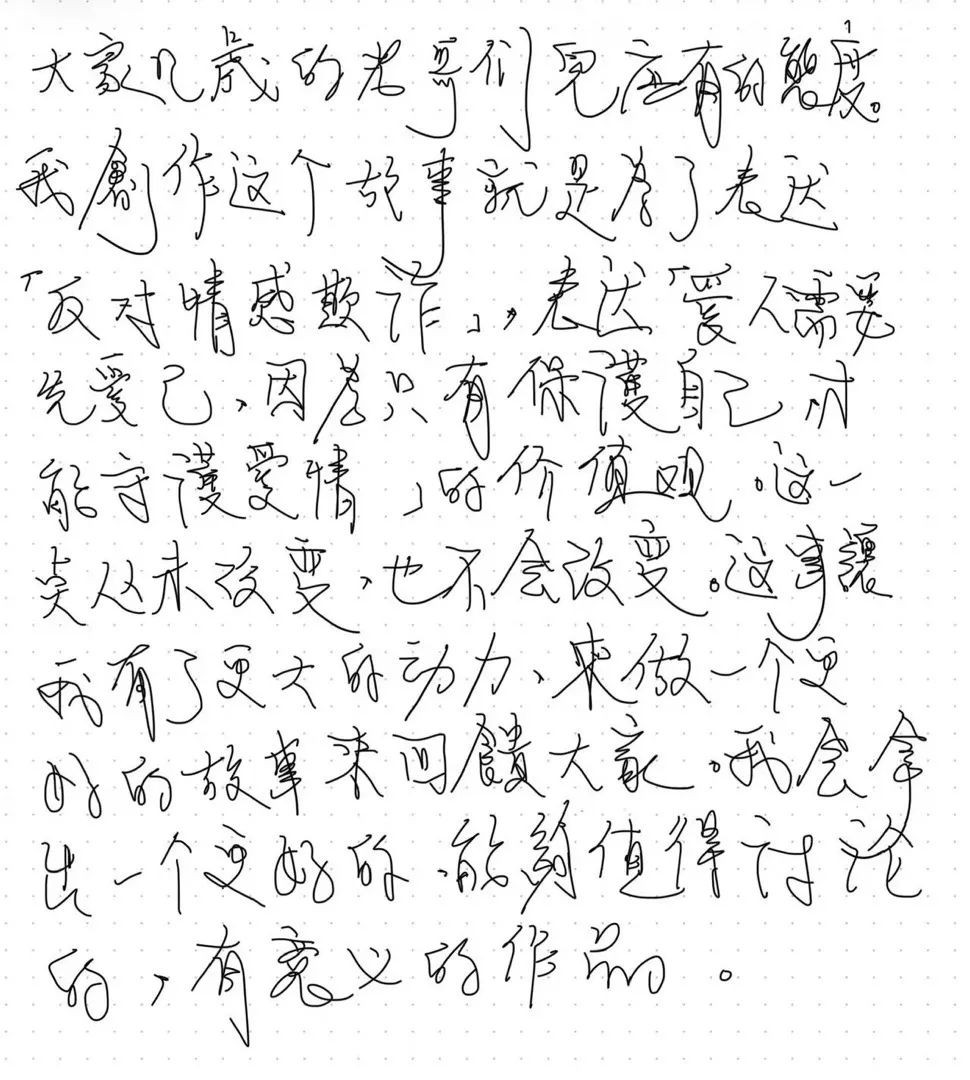 大家几歲的老哥们兒应有的態度。
我創作这个故事就是為了表达
「反对情感欺诈」,表达「愛人需要
先愛己、因為只有保護自己,才
能守護愛情」的价值观。这一
点从未改变,也不会改变。这事讓
我有了更大的动力、來做一个更
好的故事来回饋大家。我会拿
出一个更好的、能夠值得讨论
的,有意义的作品。